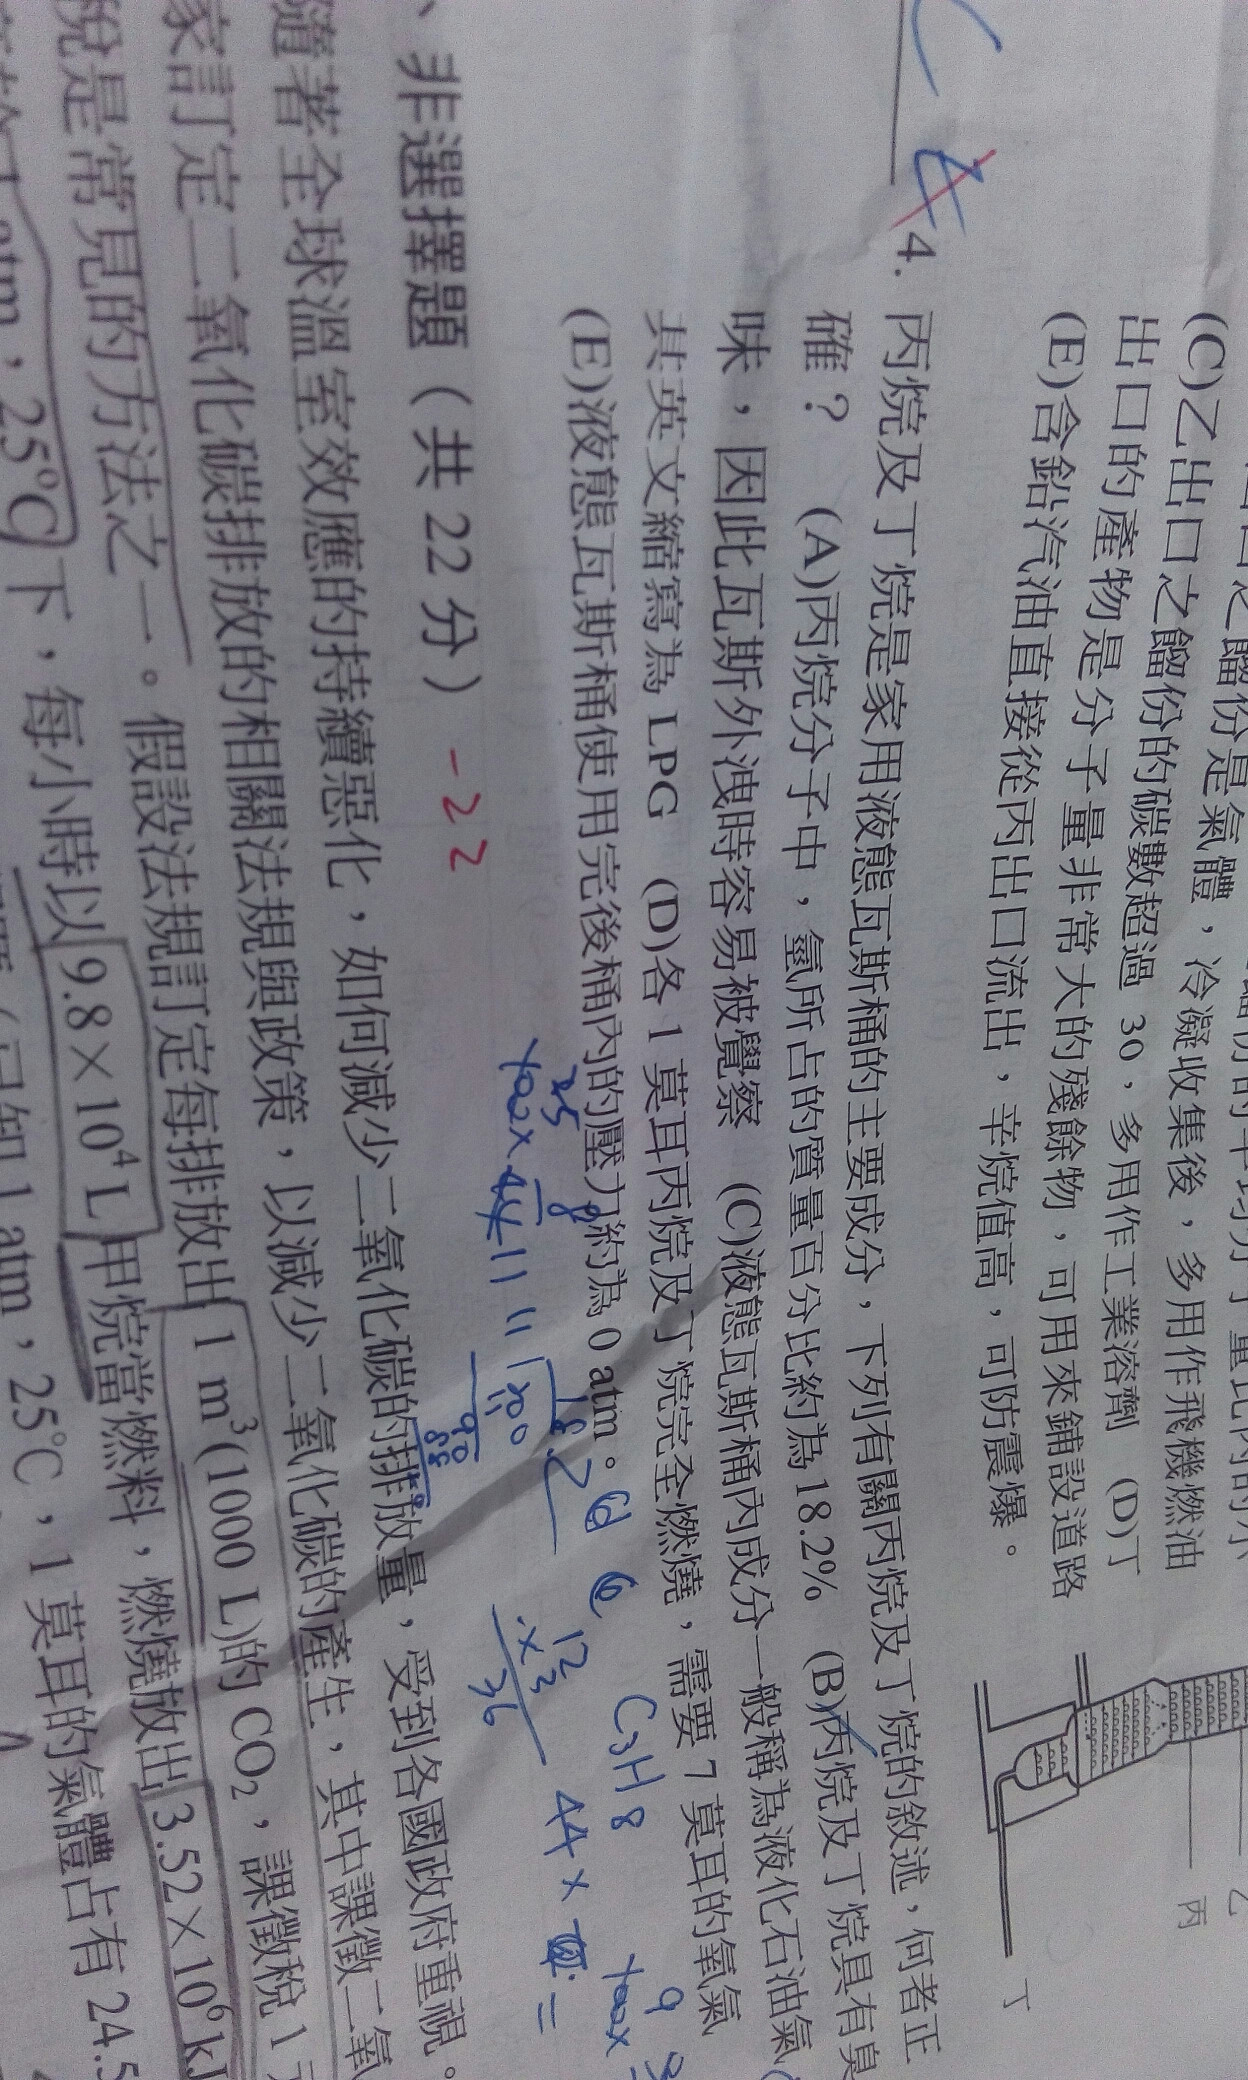 (C)乙出口之餾份的碳數超過 30，多用作工業溶劑 (D)丁
出口的產物是分子量非常大的殘餘物，可用來鋪設道路
(E)含鉛汽油直接從丙出口流出，辛烷值高，可防震爆。
乙
丙
丁
4. 丙烷及丁烷是家用液態瓦斯桶的主要成分，下列有關丙烷及丁烷的敘述，何者正
確？ (A)丙烷分子中，氫所占的質量百分比約為 18.2% (B)丙烷及丁烷具有臭
味，因此瓦斯外洩時容易被覺察 (C)液態瓦斯桶內成分一般稱為液化石油氣
其英文縮寫為 LPG (D)各 1 莫耳丙烷及丁烷完全燃燒，需要 7 莫耳的氧氣
(E)液態瓦斯桶使用完後桶內的壓力約為 0 atm。
C3H8
12
×3
36
44×
18.2
、非選擇題（共 22 分） -22
隨著全球溫室效應的持續惡化，如何減少二氧化碳的排放量，受到各國政府重視。
家訂定二氧化碳排放的相關法規與政策，以減少二氧化碳的產生，其中課徵二氧
稅是常見的方法之一。假設法規訂定每排放出 1 m³(1000 L)的 CO₂，課徵稅 1 元
atm，25°C 下，每小時以 9.8×10⁴ L 甲烷當燃料，燃燒放出 3.52×10⁶ kJ
1 atm，25°C，1 莫耳的氣體占有 24.5